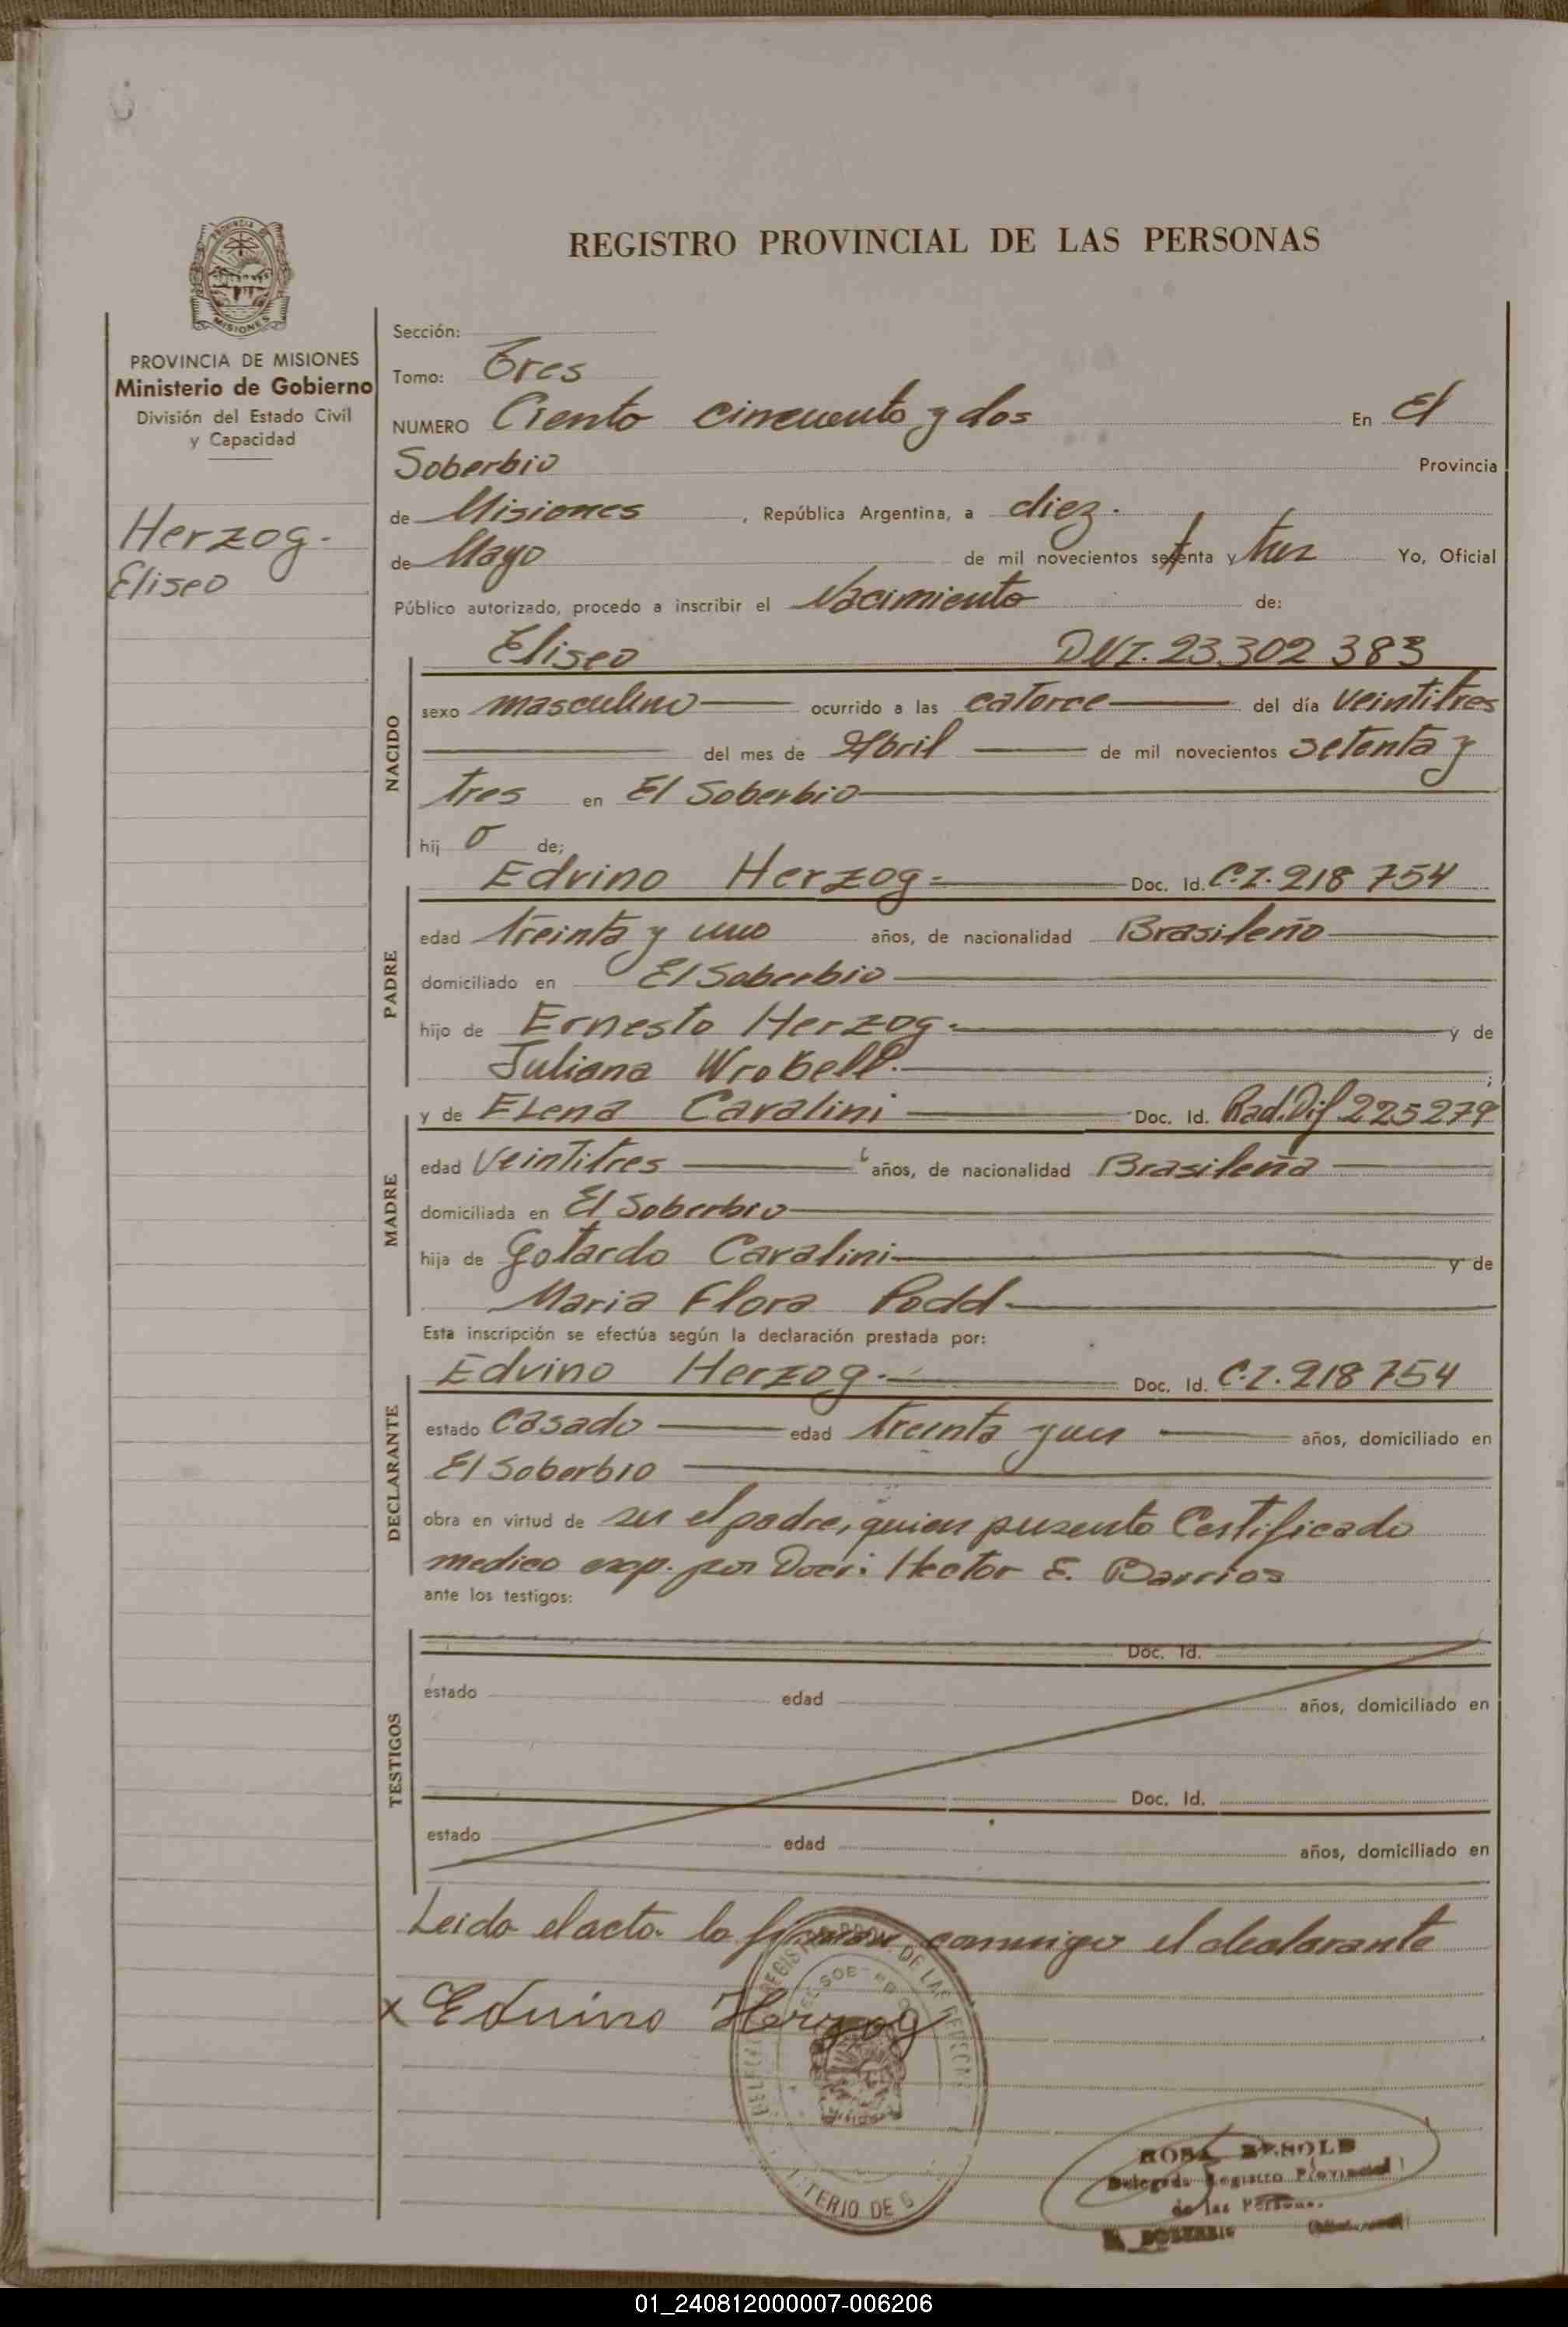 REGISTRO PROVINCIAL DE LAS PERSONAS
PROVINCIA DE
MISIONES
PROVINCIA DE MISIONES
Ministerio de Gobierno
División del Estado Civil
y Capacidad
Herzog.
Eliseo
Sección:
Tomo: Tres
NUMERO Ciento cincuenta y dos En El
Soberbio Provincia
de Misiones, República Argentina, a diez.
de Mayo de mil novecientos setenta y tres Yo, Oficial
Público autorizado, procedo a inscribir el Nacimiento de:
Eliseo DNI. 23.302 383
NACIDO
sexo masculino ocurrido a las catorce del día veintitres
del mes de Abril de mil novecientos setenta y
tres en El Soberbio
hij o de;
PADRE
Edvino Herzog Doc. Id. C.I. 218 754
edad treinta y uno años, de nacionalidad Brasileño
domiciliado en El Soberbio
hijo de Ernesto Herzog. y de
Juliana Wrobell. ;
MADRE
y de Elena Cavalini Doc. Id. Rad. Dif 225279
edad Veintitres años, de nacionalidad Brasileña
domiciliada en El Soberbio
hija de Gotardo Cavalini y de
Maria Flora Podd
Esta inscripción se efectúa según la declaración prestada por:
DECLARANTE
Edvino Herzog. Doc. Id. C.I. 218 754
estado Casado edad treinta y un años, domiciliado en
El Soberbio
obra en virtud de ser el padre, quien presenta Certificado
medico exp. por Doct: Hector E. Barrios
ante los testigos:
TESTIGOS
Doc. Id.
estado edad años, domiciliado en
Doc. Id.
estado edad años, domiciliado en
Leida el acta la firman conmigo el declarante
x Edvino Herzog
REGIST PROV. DE LAS
TERIO DE G
ROSA
Delegada Registro Provincial
de las Persona.
SOBERBIO
01_240812000007-006206